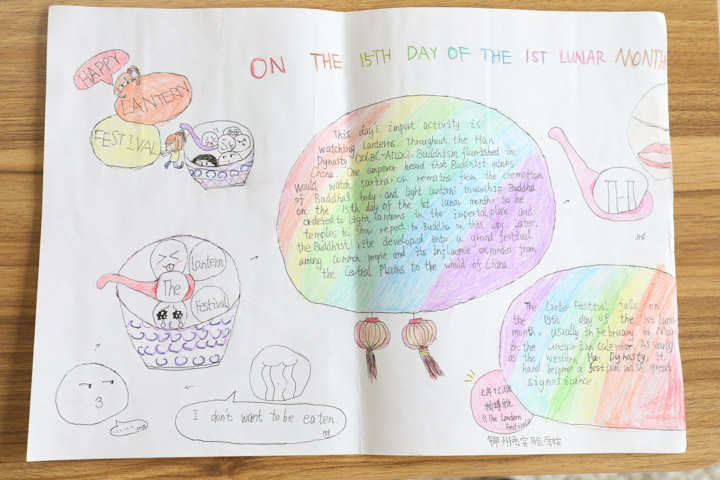 HAPPY
LANTERN
FESTIVAL
ON THE 15TH DAY OF THE 1ST LUNAR MONTH
This day's import activity is
watching lanterns Throughout the Han
Dynasty (206BC-AD220), Buddhism flourished in
China. One emperor heard that Buddhist monks
would watch sarira, or remains from the cremation
of Buddha's body, and light lanterns to worship Buddha
on the 15th day of the 1st lunar month, so he
ordered to light lanterns in the imperial palace and
temples to show respect to Buddha on this day. Later,
the Buddhist rite developed into a grand festival
among common people and its influence expanded from
the Central Plains to the whole of China.
Lantern
The
Festival
I don't want to be eaten.
1st
2nd
3rd
The Lante Festival falls on
the 15th day of the 1st lunar
month, usually in February or Mar
in the Gregorian calendar. As early
as the western Han Dynasty, it
hand become a festival with great
significance
The Lantern
Festival
锦州市实验学校